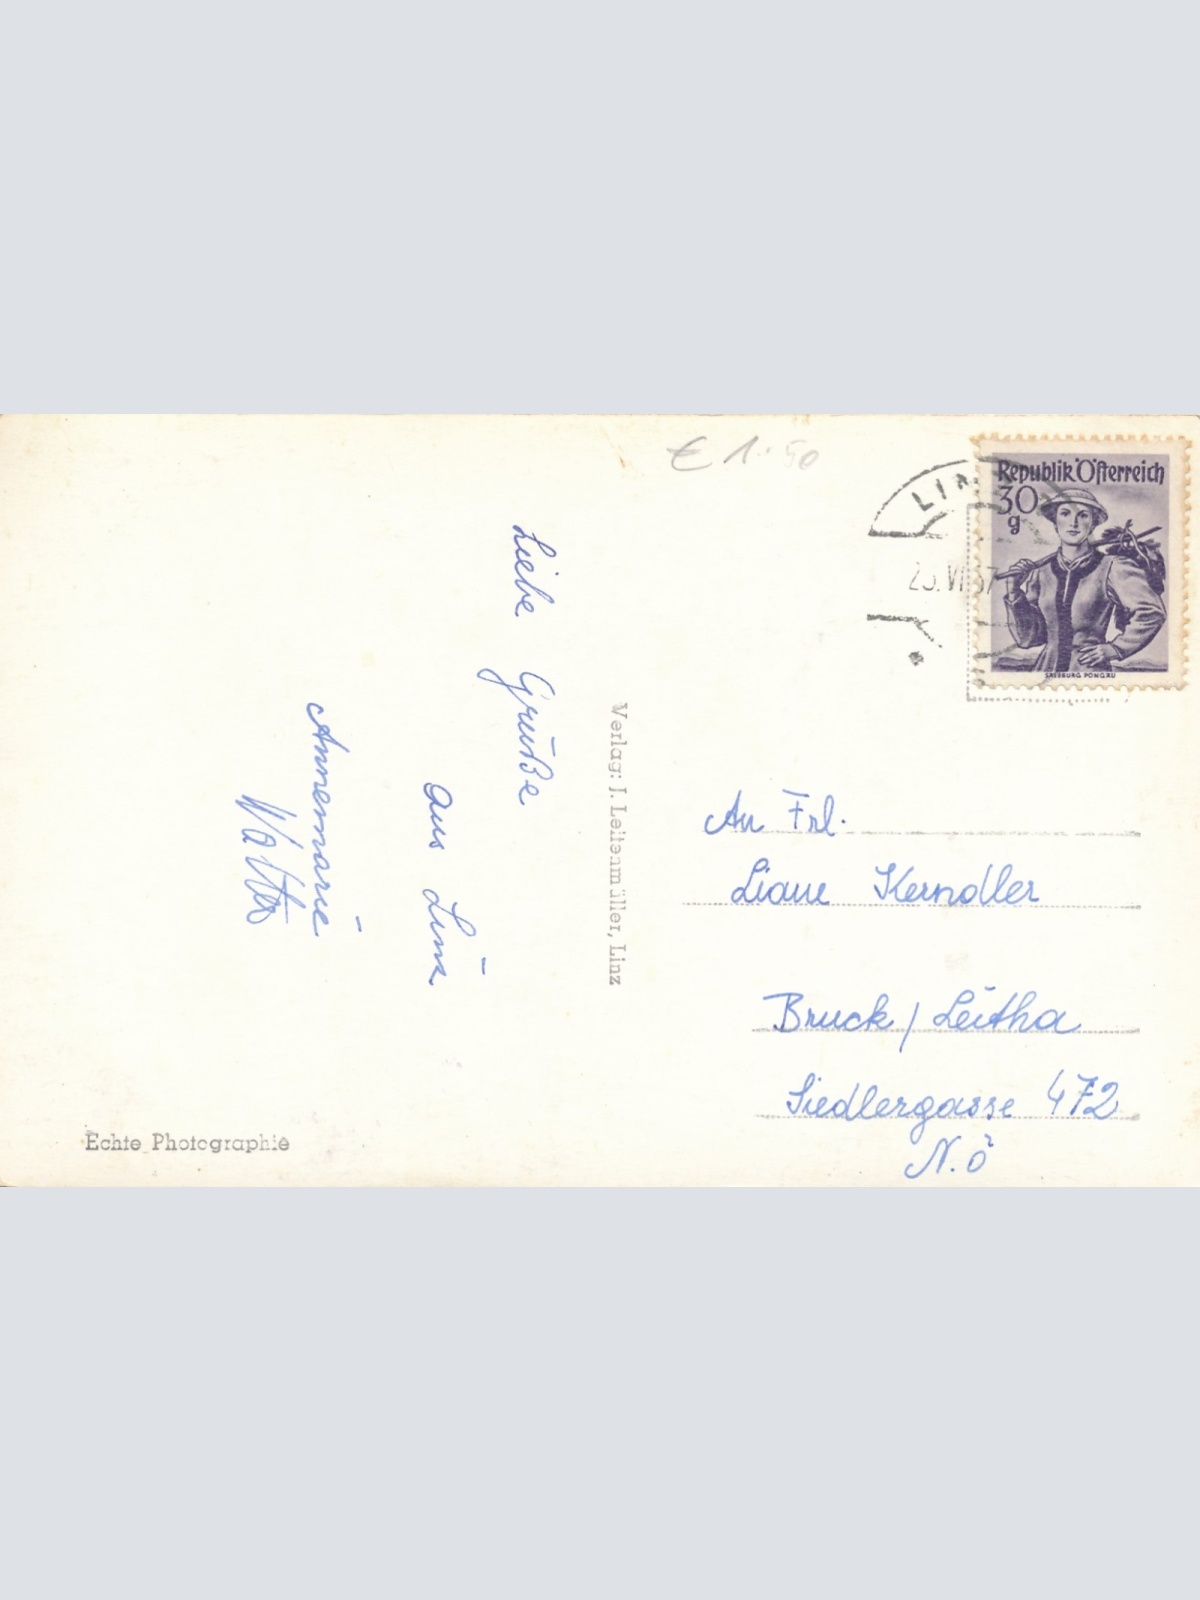 € 1.50
LINZ
Republik Österreich
30
g
SALZBURG PONGAU
Liebe Grüße
aus Linz
Annemarie
Walter
Verlag: J. Leitenmüller, Linz
An Frl.
Liane Kerndler
Bruck / Leitha
Siedlergasse 472
N.Ö
Echte Photographie